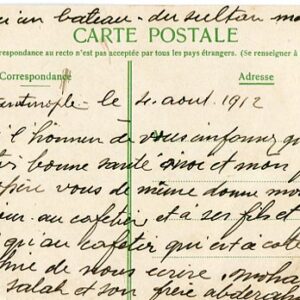 un bateau du sultan mo
CARTE POSTALE
orrespondance au recto n'est pas acceptée par tous les pays étrangers. (Se renseigner à
Correspondance
Adresse
antinople le 4 aout 1912
l'honneur de vous informer qu
bonne santé moi et mon
vous de même donne mon
au cafetier et à ses fils et
qu'au cafetier qui est à coté
de nous écrire moha
salah et son frère abderah